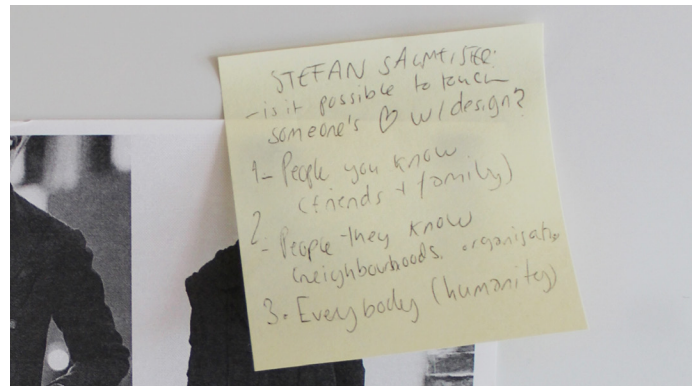 STEFAN SAGMEISTER:
- is it possible to touch
someone's ♡ w/ design?
1- People you know
(friends + family)
2- People they know
(neighbourhoods, organisation
3. Everybody (humanity)